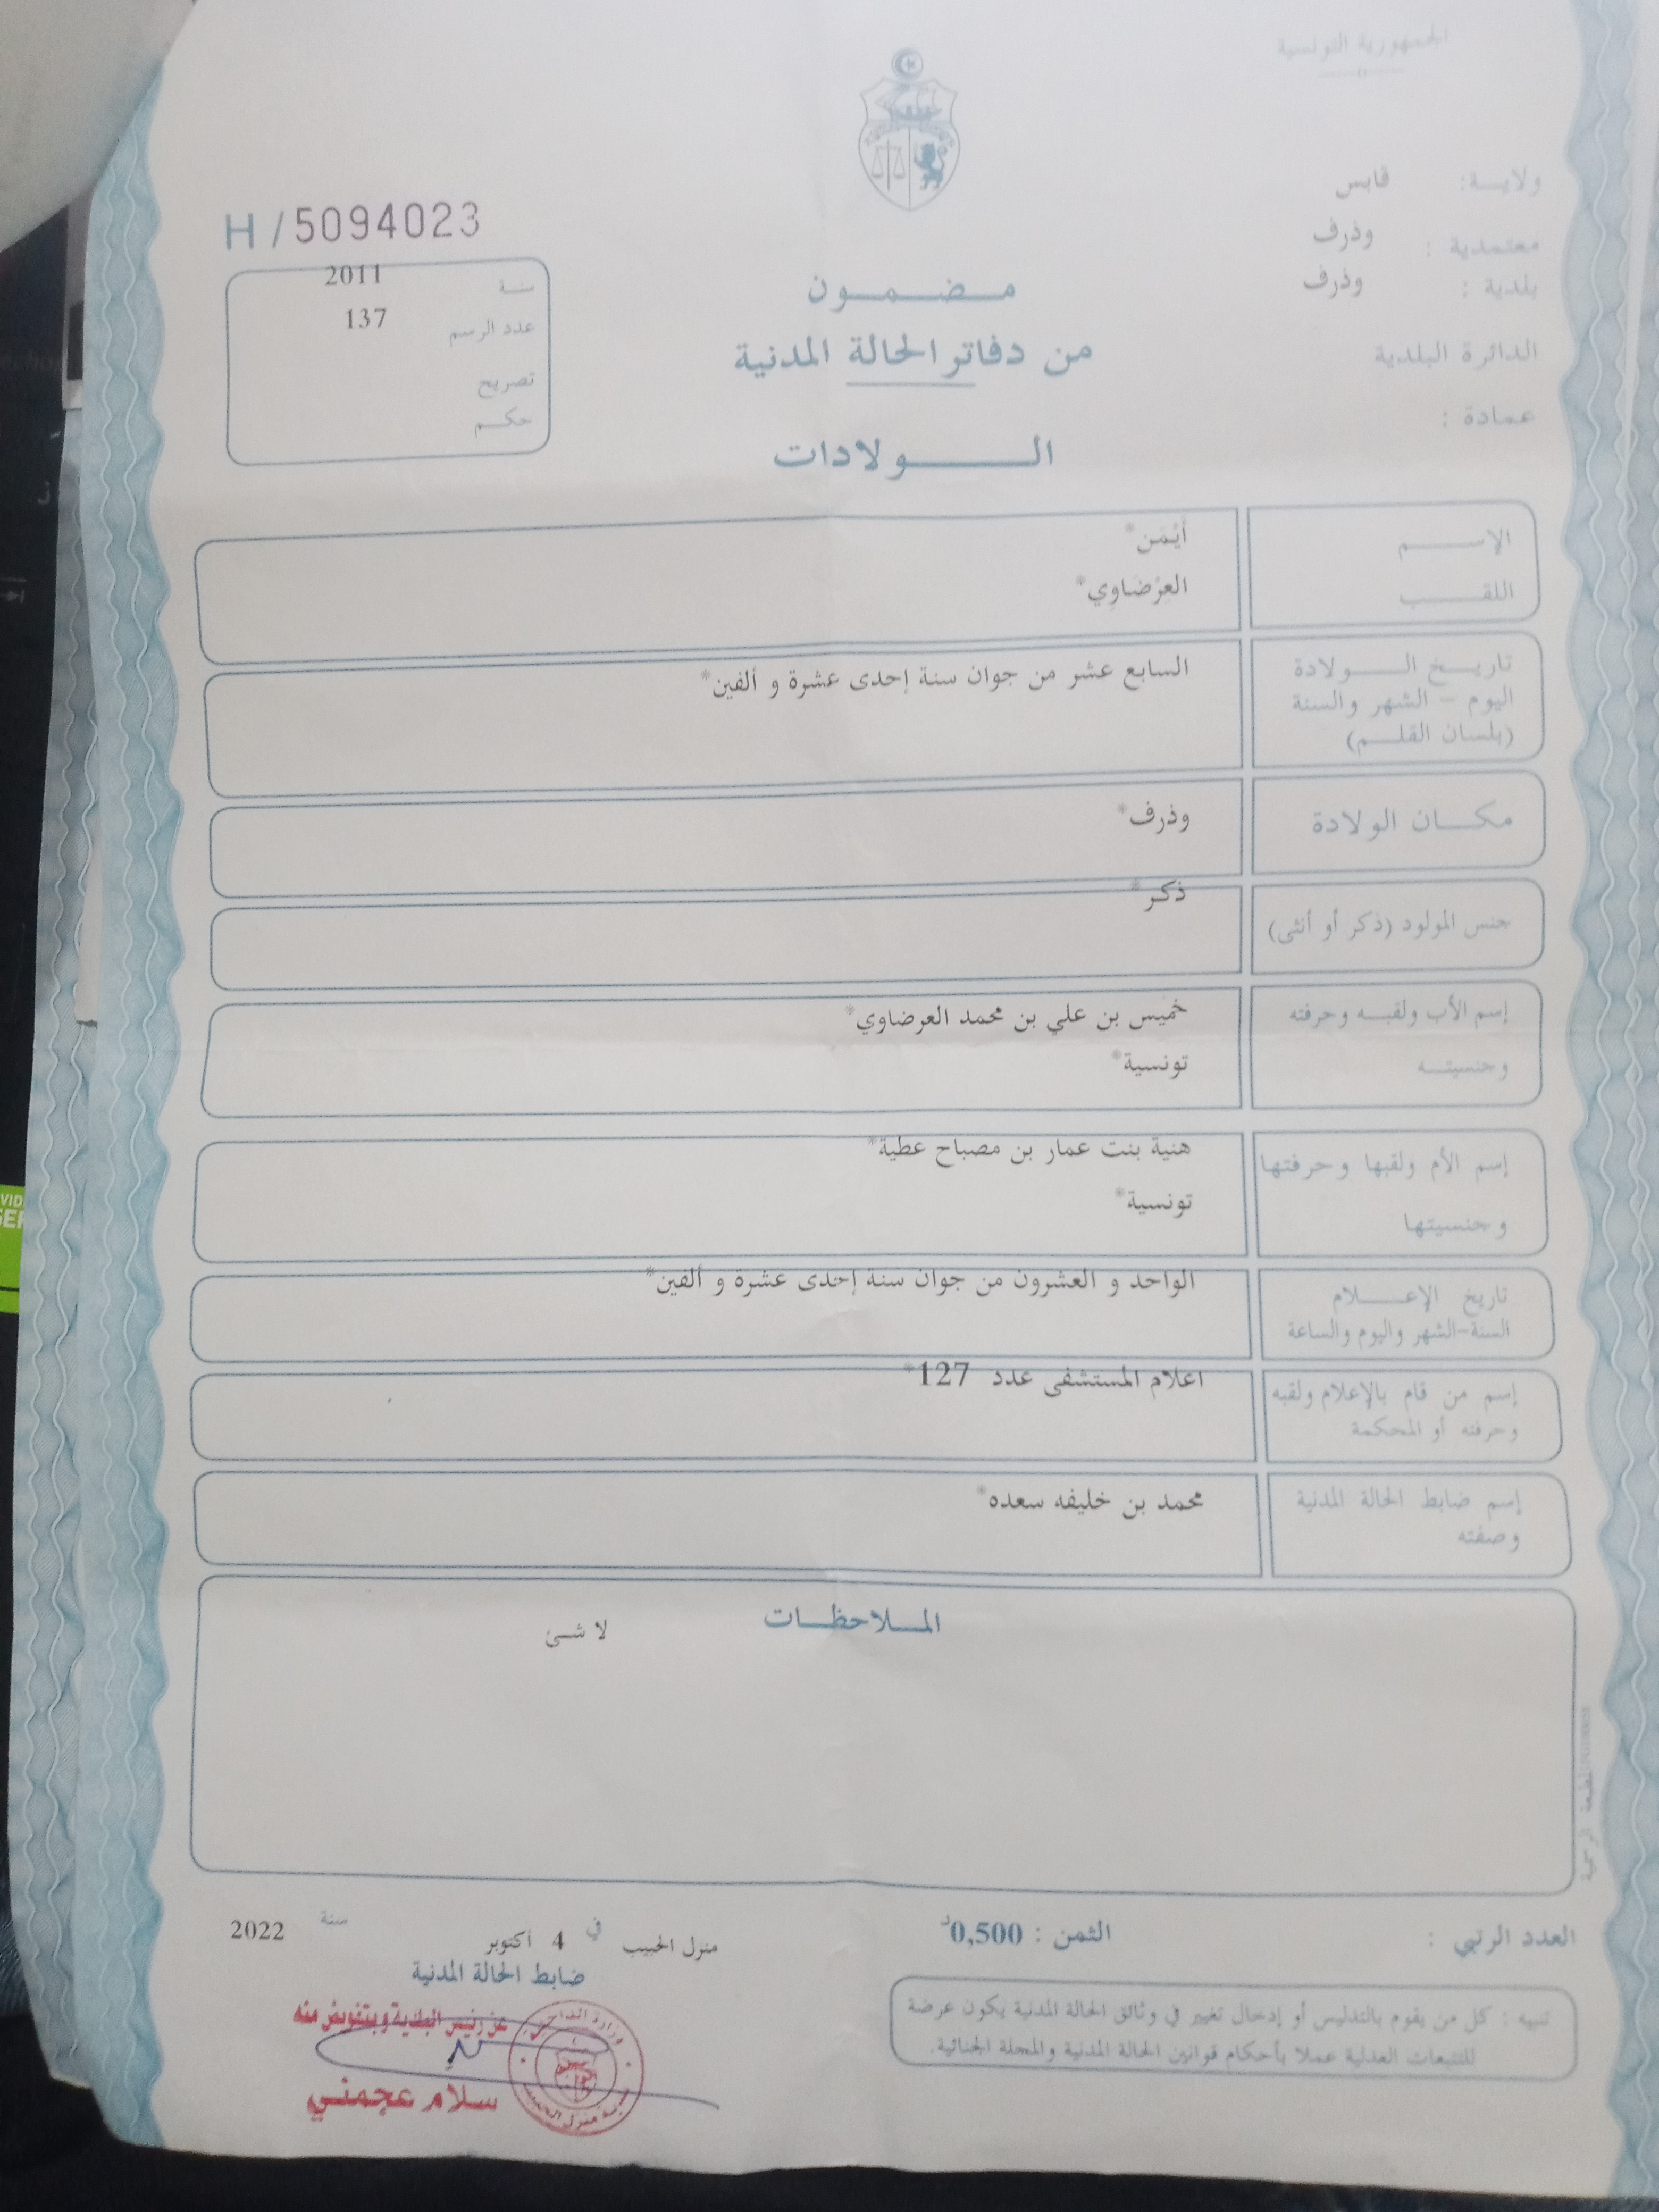 الجمهورية التونسية
ولايــة: قابس
معتمدية : وذرف
بلدية : وذرف
الدائرة البلدية
عمادة :
H / 5094023
سنـة 2011
عدد الرسم 137
تصريح
حكـم
مـضـمـون
من دفاتر الحالة المدنية
الـولادات
الإسـم أَيْمَن*
اللقـب العِرْضَاوِي*
تاريـخ الـولادة السابع عشر من جوان سنة إحدى عشرة و ألفين*
اليوم - الشهر والسنة
(بلسان القلـم)
مكـان الولادة وذرف*
جنس المولود (ذكر أو أنثى) ذكر*
إسم الأب ولقبـه وحرفته خميس بن علي بن محمد العرضاوي*
وجنسيتـه تونسية*
إسم الأم ولقبها وحرفتها هنية بنت عمار بن مصباح عطية*
وجنسيتها تونسية*
تاريخ الإعـلام الواحد و العشرون من جوان سنة إحدى عشرة و ألفين*
السنة-الشهر واليوم والساعة
إسم من قام بالإعلام ولقبه اعلام المستشفى عدد 127*
وحرفته أو المحكمة
إسم ضابط الحالة المدنية محمد بن خليفه سعده*
وصفته
المـلاحظـات
لا شئ
المطبعة الرسمية
العدد الرتبي : الثمن : 0,500د
منزل الحبيب في 4 أكتوبر سنة 2022
ضابط الحالة المدنية
عن رئيس البلدية وبتفويض منه
سلام عجمني
تنبيه : كل من يقوم بالتدليس أو إدخال تغيير في وثائق الحالة المدنية يكون عرضة
للتتبعات العدلية عملا بأحكام قوانين الحالة المدنية والمجلة الجنائية.